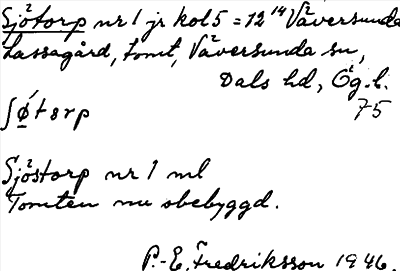 Sjö²torp nr 1 jr kol 5 = 12 14 Vä²versunda
Lassegård, tomt, Vä²versunda sn,
Dals hd, Ög. l.
75
ʃø´tɵrp
Sjö²storp nr 1 ml
Tomten nu obebyggd.
P.-E. Fredriksson 1946.